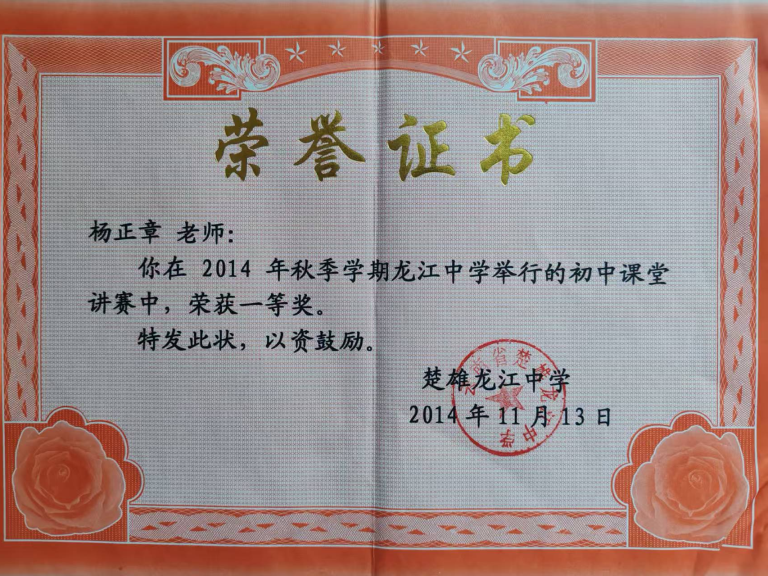 荣誉证书
杨正章 老师：
你在 2014 年秋季学期龙江中学举行的初中课堂
讲赛中，荣获一等奖。
特发此状，以资鼓励。
楚雄龙江中学
2014 年 11 月 13 日
云南省楚雄龙江中学